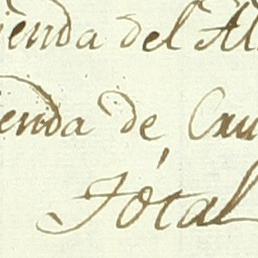 ienda del Al
ienda de Cru
Total